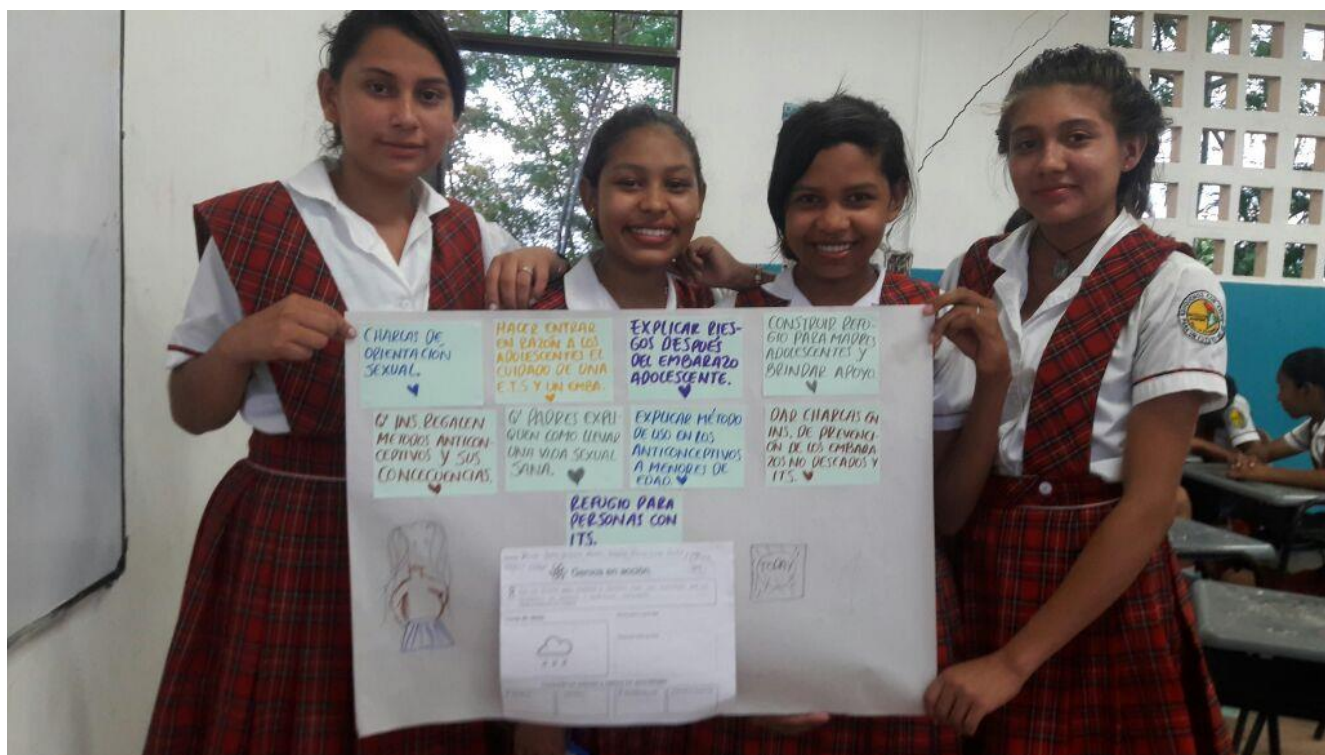 CHARLAS DE
ORIENTACIÓN
SEXUAL.
HACER ENTRAR
EN RAZÓN A LOS
ADOLESCENTES EL
CUIDADO DE UNA
E.T.S Y UN EMBA.
EXPLICAR RIES-
GOS DESPUÉS
DEL EMBARAZO
ADOLESCENTE.
CONSTRUIR REFU-
GIO PARA MADRES
ADOLESCENTES Y
BRINDAR APOYO.
Q' INS. REGALEN
METODOS ANTICON-
CEPTIVOS Y SUS
CONCECUENCIAS.
Q' PADRES EXPLI
QUEN COMO LLEVAR
UNA VIDA SEXUAL
SANA.
EXPLICAR MÉTODO
DE USO EN LOS
ANTICONCEPTIVOS
A MENORES DE
EDAD.
DAR CHARLAS EN
INS. DE PREVENCI-
ÓN DE LOS EMBARA
ZOS NO DESEADOS Y
ITS.
REFUGIO PARA
PERSONAS CON
ITS.
Genios en acción
TODAY